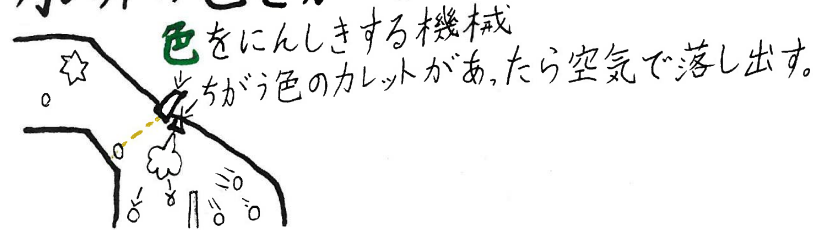 色をにんしきする機械
ちがう色のカレットがあったら空気で落し出す。